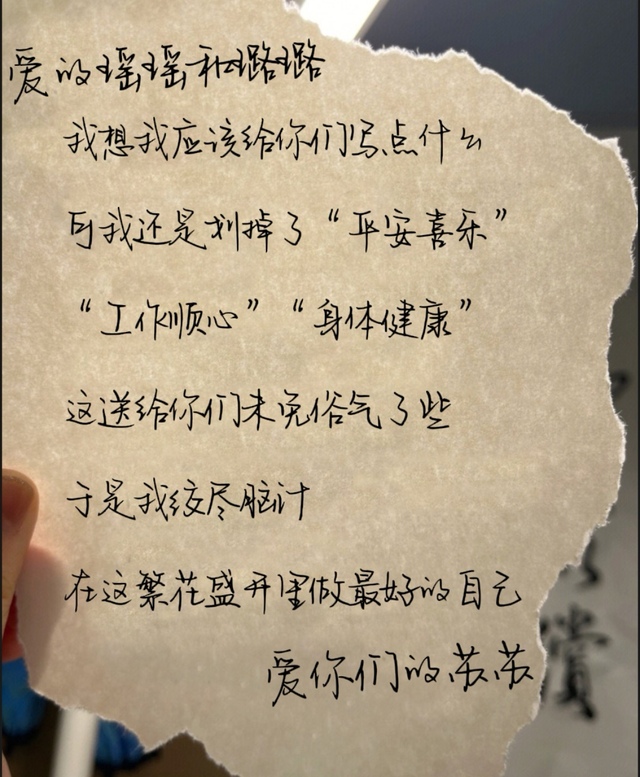 爱的瑶瑶和璐璐
我想我应该给你们写点什么
可我还是划掉了“平安喜乐”
“工作顺心”“身体健康”
这送给你们未免俗气了些
于是我绞尽脑汁
在这繁花盛开里做最好的自己
爱你们的苏苏
赏